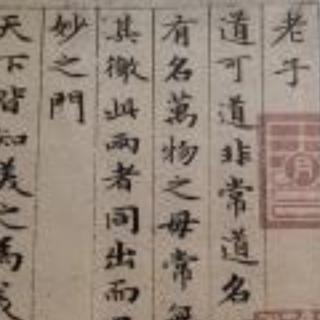 老子
道可道非常道名
有名萬物之母常無
其徼此兩者同出而
妙之門
天下皆知美之為美